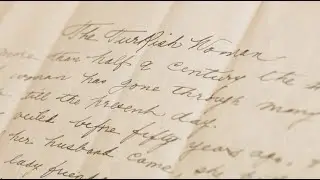 The Turkish Woman
more than half a century the
woman has gone through many
till the present day.
before fifty years ago,
her husband came, she
lady friend